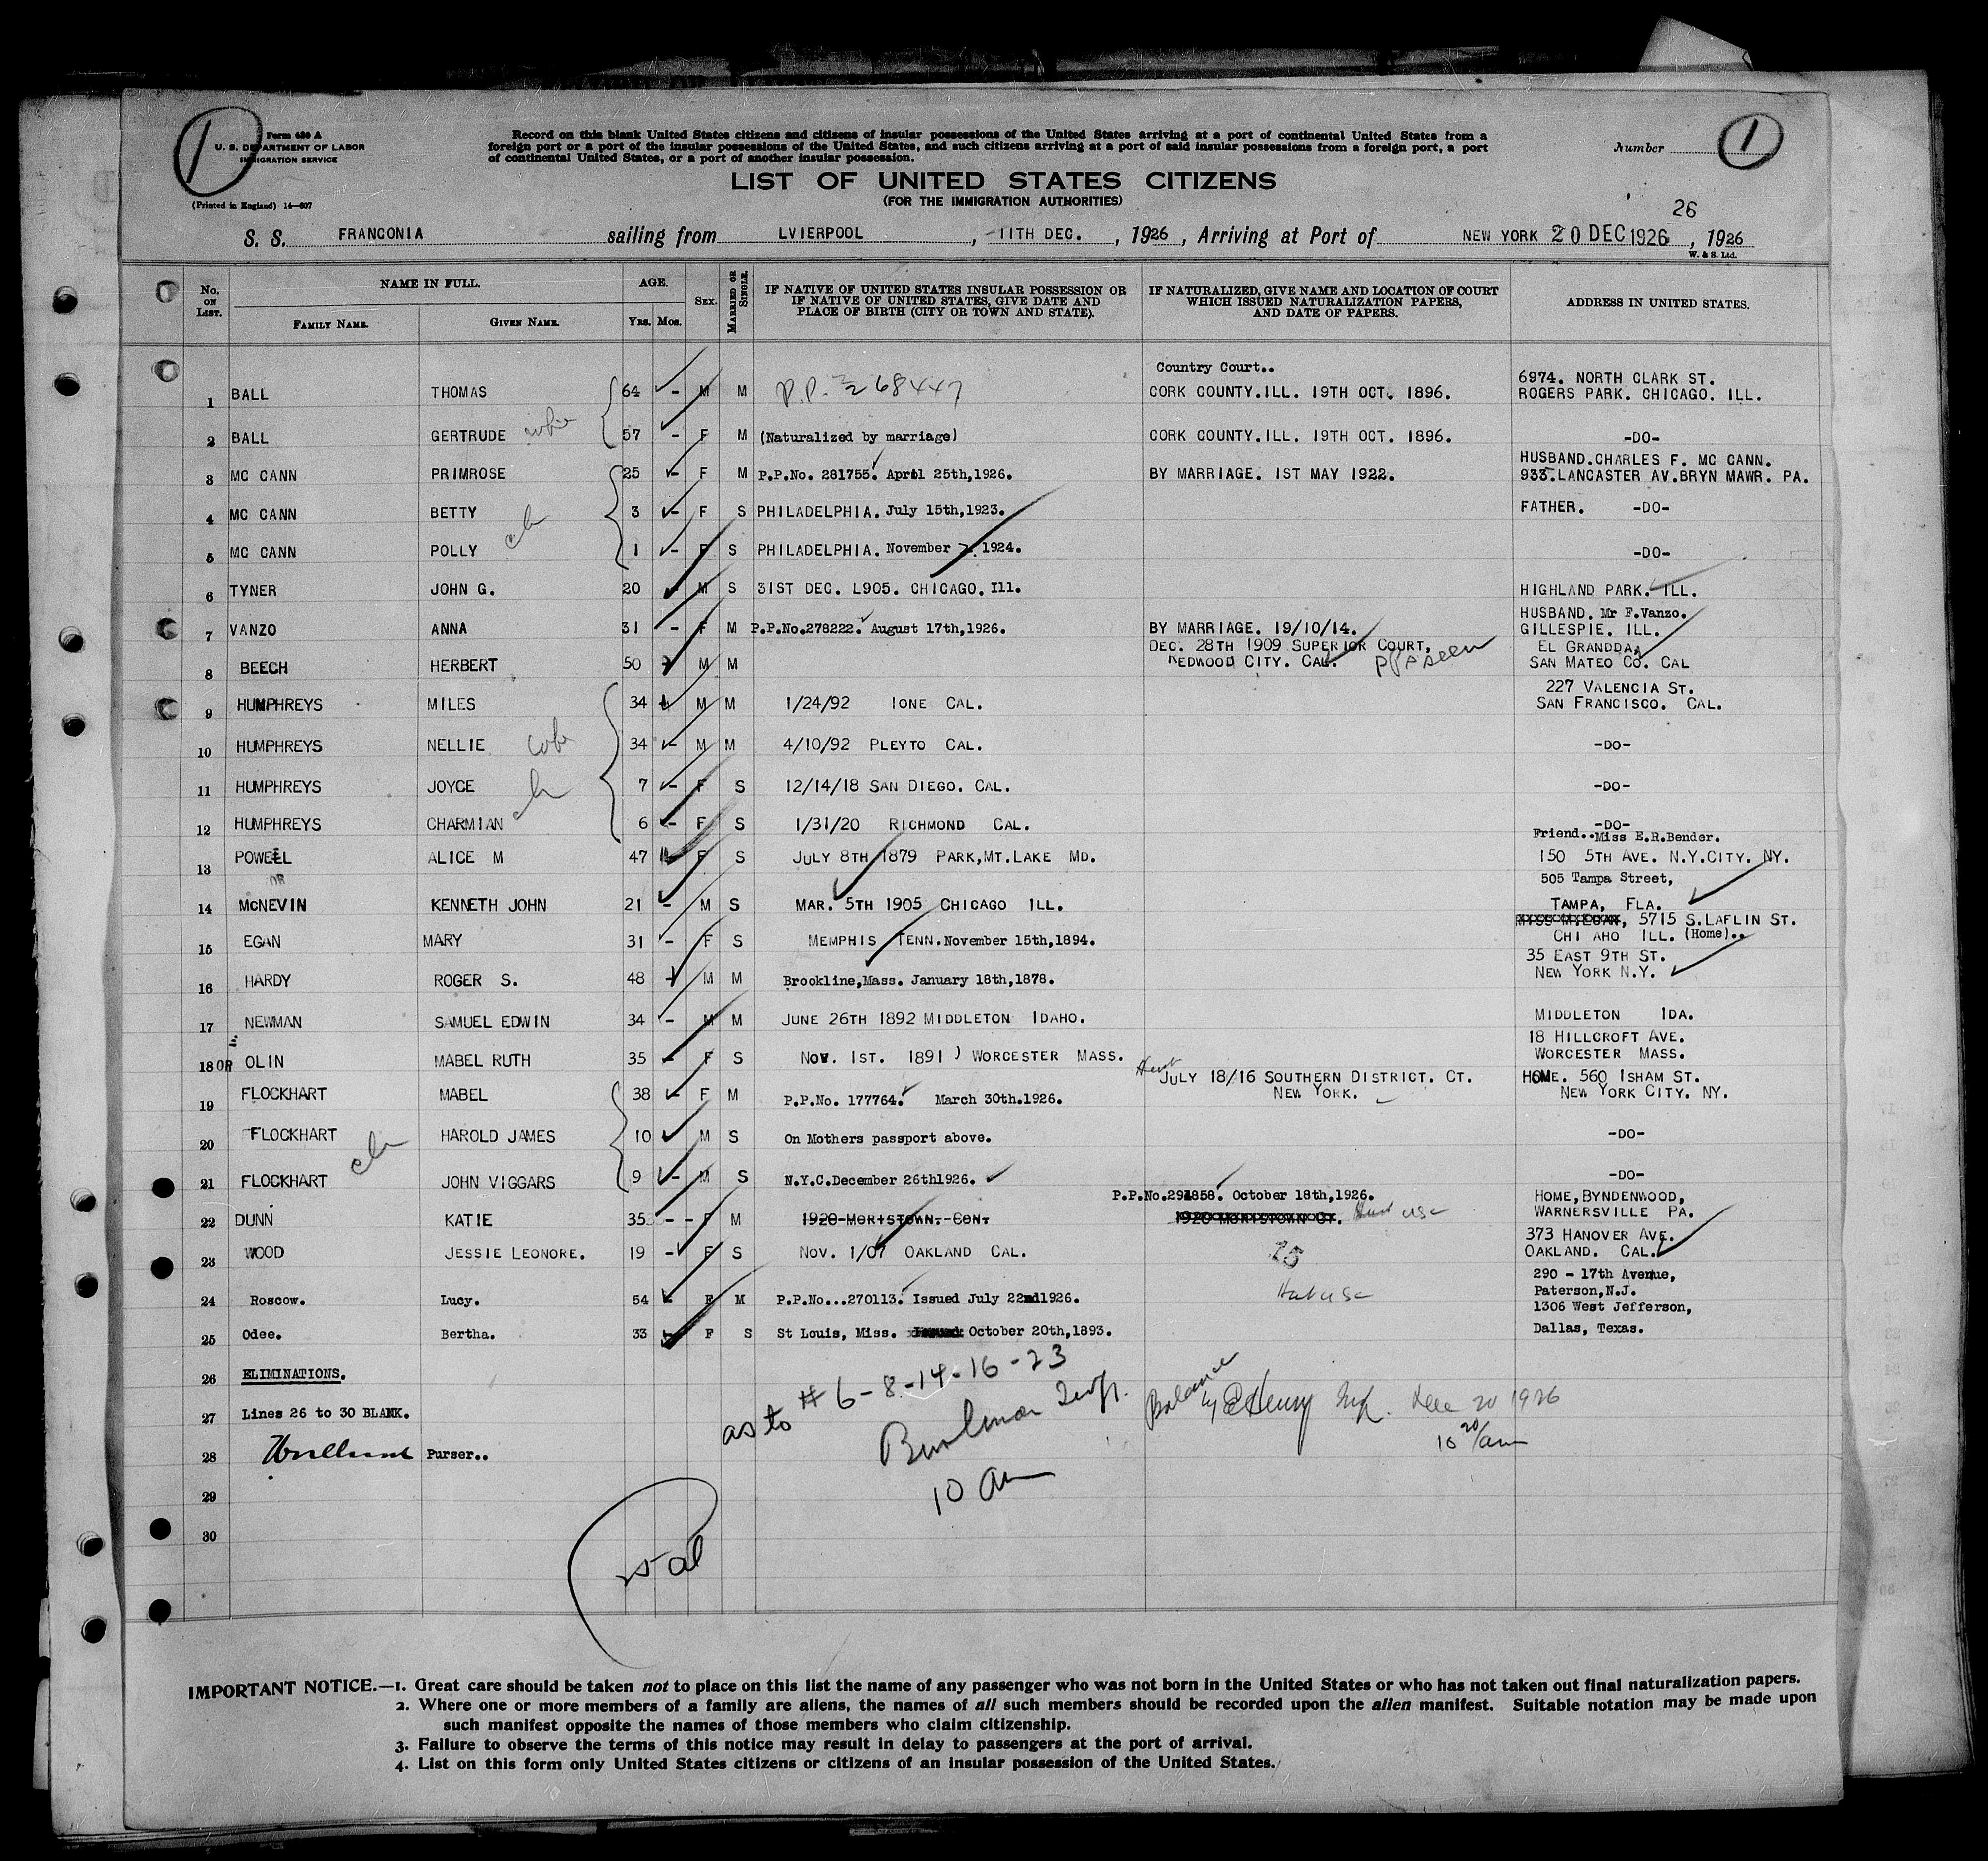 1
Form 630 A
U. S. DEPARTMENT OF LABOR
IMMIGRATION SERVICE
(Printed in England) 14—607
Record on this blank United States citizens and citizens of insular possessions of the United States arriving at a port of continental United States from a
foreign port or a port of the insular possessions of the United States, and such citizens arriving at a port of said insular possessions from a foreign port, a port
of continental United States, or a port of another insular possession.
Number 1
LIST OF UNITED STATES CITIZENS
(FOR THE IMMIGRATION AUTHORITIES)
26
S. S. FRANCONIA sailing from LVIERPOOL, 11TH DEC., 1926, Arriving at Port of NEW YORK 20 DEC 1926, 1926
W. & S. Ltd.
No. ON LIST. NAME IN FULL. FAMILY NAME. GIVEN NAME. AGE. YRS. MOS. SEX. MARRIED OR SINGLE. IF NATIVE OF UNITED STATES INSULAR POSSESSION OR IF NATIVE OF UNITED STATES, GIVE DATE AND PLACE OF BIRTH (CITY OR TOWN AND STATE). IF NATURALIZED, GIVE NAME AND LOCATION OF COURT WHICH ISSUED NATURALIZATION PAPERS, AND DATE OF PAPERS. ADDRESS IN UNITED STATES.
Country Court..
6974. NORTH CLARK ST.
1 BALL THOMAS 64 - M M P.P. 268447 CORK COUNTY.ILL. 19TH OCT. 1896. ROGERS PARK. CHICAGO. ILL.
2 BALL GERTRUDE wife 57 - F M (Naturalized by marriage) CORK COUNTY.ILL. 19TH OCT. 1896. -DO-
HUSBAND.CHARLES F. MC CANN.
3 MC CANN PRIMROSE 25 - F M P.P.No. 281755. April 25th,1926. BY MARRIAGE. 1ST MAY 1922. 933.LANCASTER AV.BRYN MAWR. PA.
4 MC CANN BETTY 3 - F S PHILADELPHIA. July 15th,1923. FATHER. -DO-
ch
5 MC CANN POLLY 1 - F S PHILADELPHIA. November 2. 1924. -DO-
6 TYNER JOHN G. 20 M S 31ST DEC. L905. CHICAGO. Ill. HIGHLAND PARK. ILL.
HUSBAND. Mr F.Vanzo.
7 VANZO ANNA 31 - F M P.P.No.278222. August 17th,1926. BY MARRIAGE. 19/10/14. GILLESPIE. ILL.
DEC. 28TH 1909 SUPERIOR COURT, EL GRANDDA,
8 BEECH HERBERT 50 M M REDWOOD CITY. CAL. PP seen SAN MATEO CO. CAL
227 VALENCIA ST.
9 HUMPHREYS MILES 34 M M 1/24/92 IONE CAL. SAN FRANCISCO. CAL.
10 HUMPHREYS NELLIE 34 - M M 4/10/92 PLEYTO CAL. -DO-
11 HUMPHREYS JOYCE ch 7 - F S 12/14/18 SAN DIEGO. CAL. -DO-
12 HUMPHREYS CHARMIAN 6 - F S 1/31/20 RICHMOND CAL. -DO-
Friend..Miss E.R.Bender.
13 POWELL ALICE M 47 F S JULY 8TH 1879 PARK,MT.LAKE MD. 150 5TH AVE. N.Y.CITY. NY.
OR 505 Tampa Street,
14 MCNEVIN KENNETH JOHN 21 - M S MAR. 5TH 1905 CHICAGO ILL. TAMPA, FLA.
5715 S.LAFLIN ST.
15 EGAN MARY 31 - F S MEMPHIS TENN.November 15th,1894. CHI AHO ILL. (Home)..
35 EAST 9TH ST.
16 HARDY ROGER S. 48 M M Brookline,Mass. January 18th,1878. NEW YORK N.Y.
17 NEWMAN SAMUEL EDWIN 34 - M M JUNE 26TH 1892 MIDDLETON IDAHO. MIDDLETON IDA.
18 HILLCROFT AVE.
18 OR OLIN MABEL RUTH 35 - F S NOV. 1ST. 1891) WORCESTER MASS. WORCESTER MASS.
JULY 18/16 SOUTHERN DISTRICT. CT. HOME. 560 ISHAM ST.
19 FLOCKHART MABEL 38 - F M P.P.No. 177764. March 30th.1926. NEW YORK. NEW YORK CITY. NY.
20 FLOCKHART HAROLD JAMES 10 M S On Mothers passport above. -DO-
ch
21 FLOCKHART JOHN VIGGARS 9 - M S N.Y.C.December 26th1926. -DO-
P.P.No.291858. October 18th,1926. HOME,BYNDENWOOD,
22 DUNN KATIE 35 - - F M 1920-MORISTOWN.-CONT 1920 MORISTOWN CT. WARNERSVILLE PA.
373 HANOVER AVE.
23 WOOD JESSIE LEONORE. 19 - F S NOV. 1/07 OAKLAND CAL. 25 OAKLAND. CAL.
290 - 17th Avenue,
24 Roscow. Lucy. 54 - F M P.P.No...270113. Issued July 22nd1926. Paterson,N.J.
1306 West Jefferson,
25 Odee. Bertha. 33 - F S St Louis, Miss. October 20th,1893. Dallas, Texas.
26 ELIMINATIONS.
as to # 6-8-14-16-23
27 Lines 26 to 30 BLANK.
Balance by Henry Dec 20 1926
10 20/am
28 Purser..
10 am
29
30
IMPORTANT NOTICE.—1. Great care should be taken not to place on this list the name of any passenger who was not born in the United States or who has not taken out final naturalization papers.
2. Where one or more members of a family are aliens, the names of all such members should be recorded upon the alien manifest. Suitable notation may be made upon
such manifest opposite the names of those members who claim citizenship.
3. Failure to observe the terms of this notice may result in delay to passengers at the port of arrival.
4. List on this form only United States citizens or citizens of an insular possession of the United States.